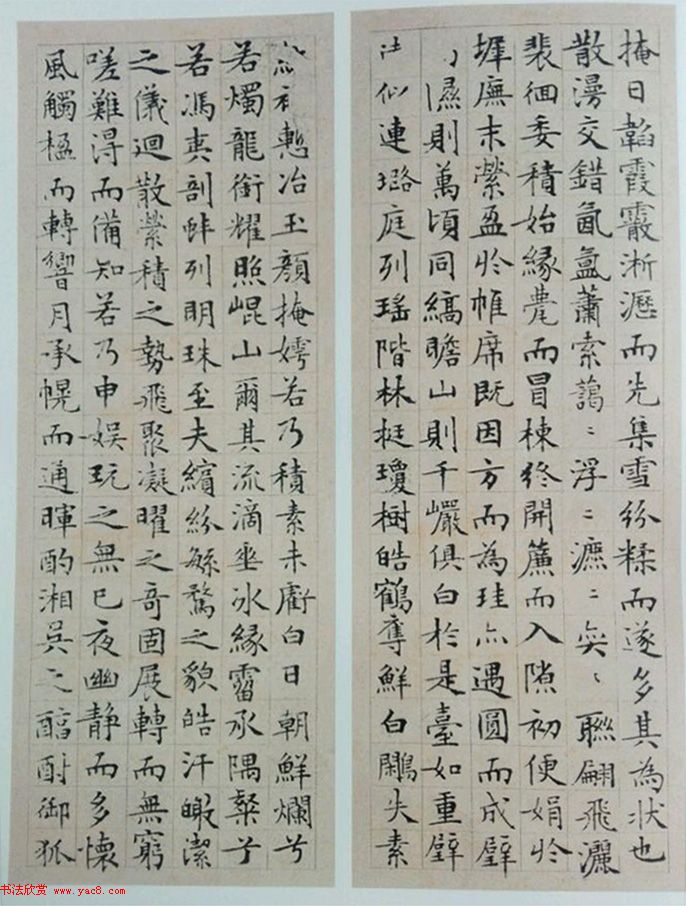 掩日韜霞霰淅瀝而先集雪紛糅而遂多其為狀也
散漫交錯氤氳蕭索藹〻浮〻瀌〻奕〻聯翩飛灑
裴徊委積始緣甍而冒棟終開簾而入隙初便娟於
墀廡末縈盈於帷席既因方而為珪亦遇圓而成璧
隰則萬頃同縞瞻山則千巖俱白於是臺如重璧
似連璐庭列瑤階林挺瓊樹皓鶴奪鮮白鷳失素
慙冶玉顏掩姱若乃積素未虧白日朝鮮爛兮
若燭龍銜耀照崐山爾其流滴垂冰緣霤承隅粲兮
若馮夷剖蚌列明珠至夫繽紛繁騖之貌皓汗皦潔
之儀迴散縈積之勢飛聚凝曜之奇固展轉而無窮
嗟難得而備知若乃申娛玩之無已夜幽靜而多懷
風觸楹而轉響月承幌而通暉酌湘吳之醇酎御狐
书法欣赏 www.yac8.com